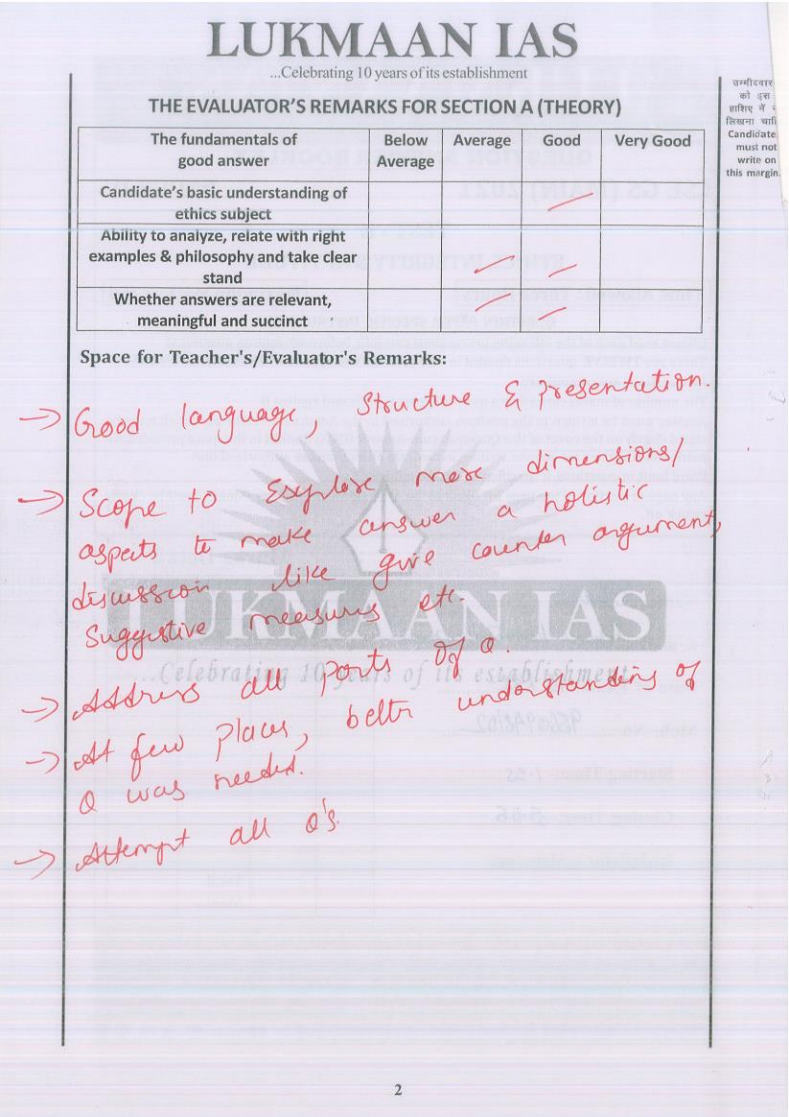 LUKMAAN IAS
...Celebrating 10 years of its establishment
THE EVALUATOR'S REMARKS FOR SECTION A (THEORY)
The fundamentals of good answer | Below Average | Average | Good | Very Good
Candidate's basic understanding of ethics subject
Ability to analyze, relate with right examples & philosophy and take clear stand
Whether answers are relevant, meaningful and succinct
उम्मीदवार
को इस
हाशिए में
लिखना
Candidate
must not
write on
this margin.
Space for Teacher's/Evaluator's Remarks:
→ Good language, structure & Presentation.
→ Scope to Explore more dimensions/
aspects to make answer a holistic
discussion like give counter argument,
suggestive measures etc.
→ Address all parts of Q.
→ At few places, better understanding of
Q was needed.
→ Attempt all Q's.
LUKMAAN IAS
...Celebrating 10 years of its establishment
2